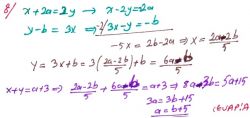 8/ x+2a=2y → x-2y=2a
y-b = 3x ⇒ -2/ 3x-y=-b
-5x = 2b-2a ⇒ x = 2a-2b/5
y = 3x+b = 3(2a-2b/5)+b = 6a-b/5
x+y=a+3 ⇒ 2a-2b/5 + 6a-b/5 = a+3 ⇒ 8a-3b=5a+15
3a=3b+15
a=b+5